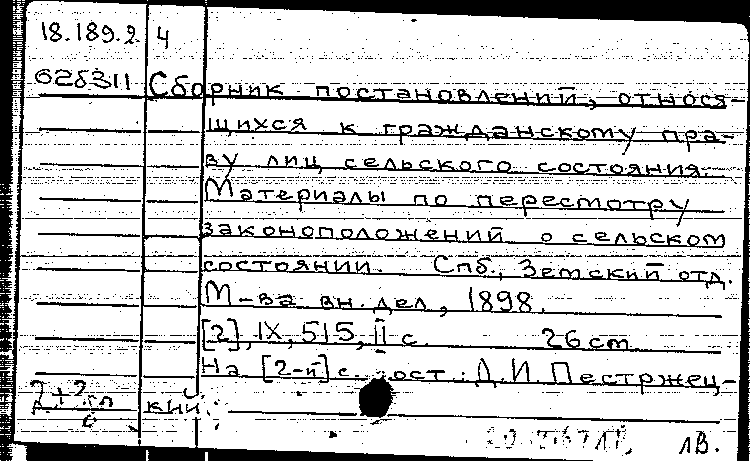 18.189.2 4
628311 Сборник постановлений, относя-
щихся к гражданскому пра-
ву лиц сельского состояния.
Материалы по пересмотру
законоположений о сельском
состоянии. Спб., Земский отд.
М-ва вн. дел, 1898.
[2], IX, 515, II с. 26 см.
На [2-й] с. сост.: Д. И. Пестржец-
кий.
лв.